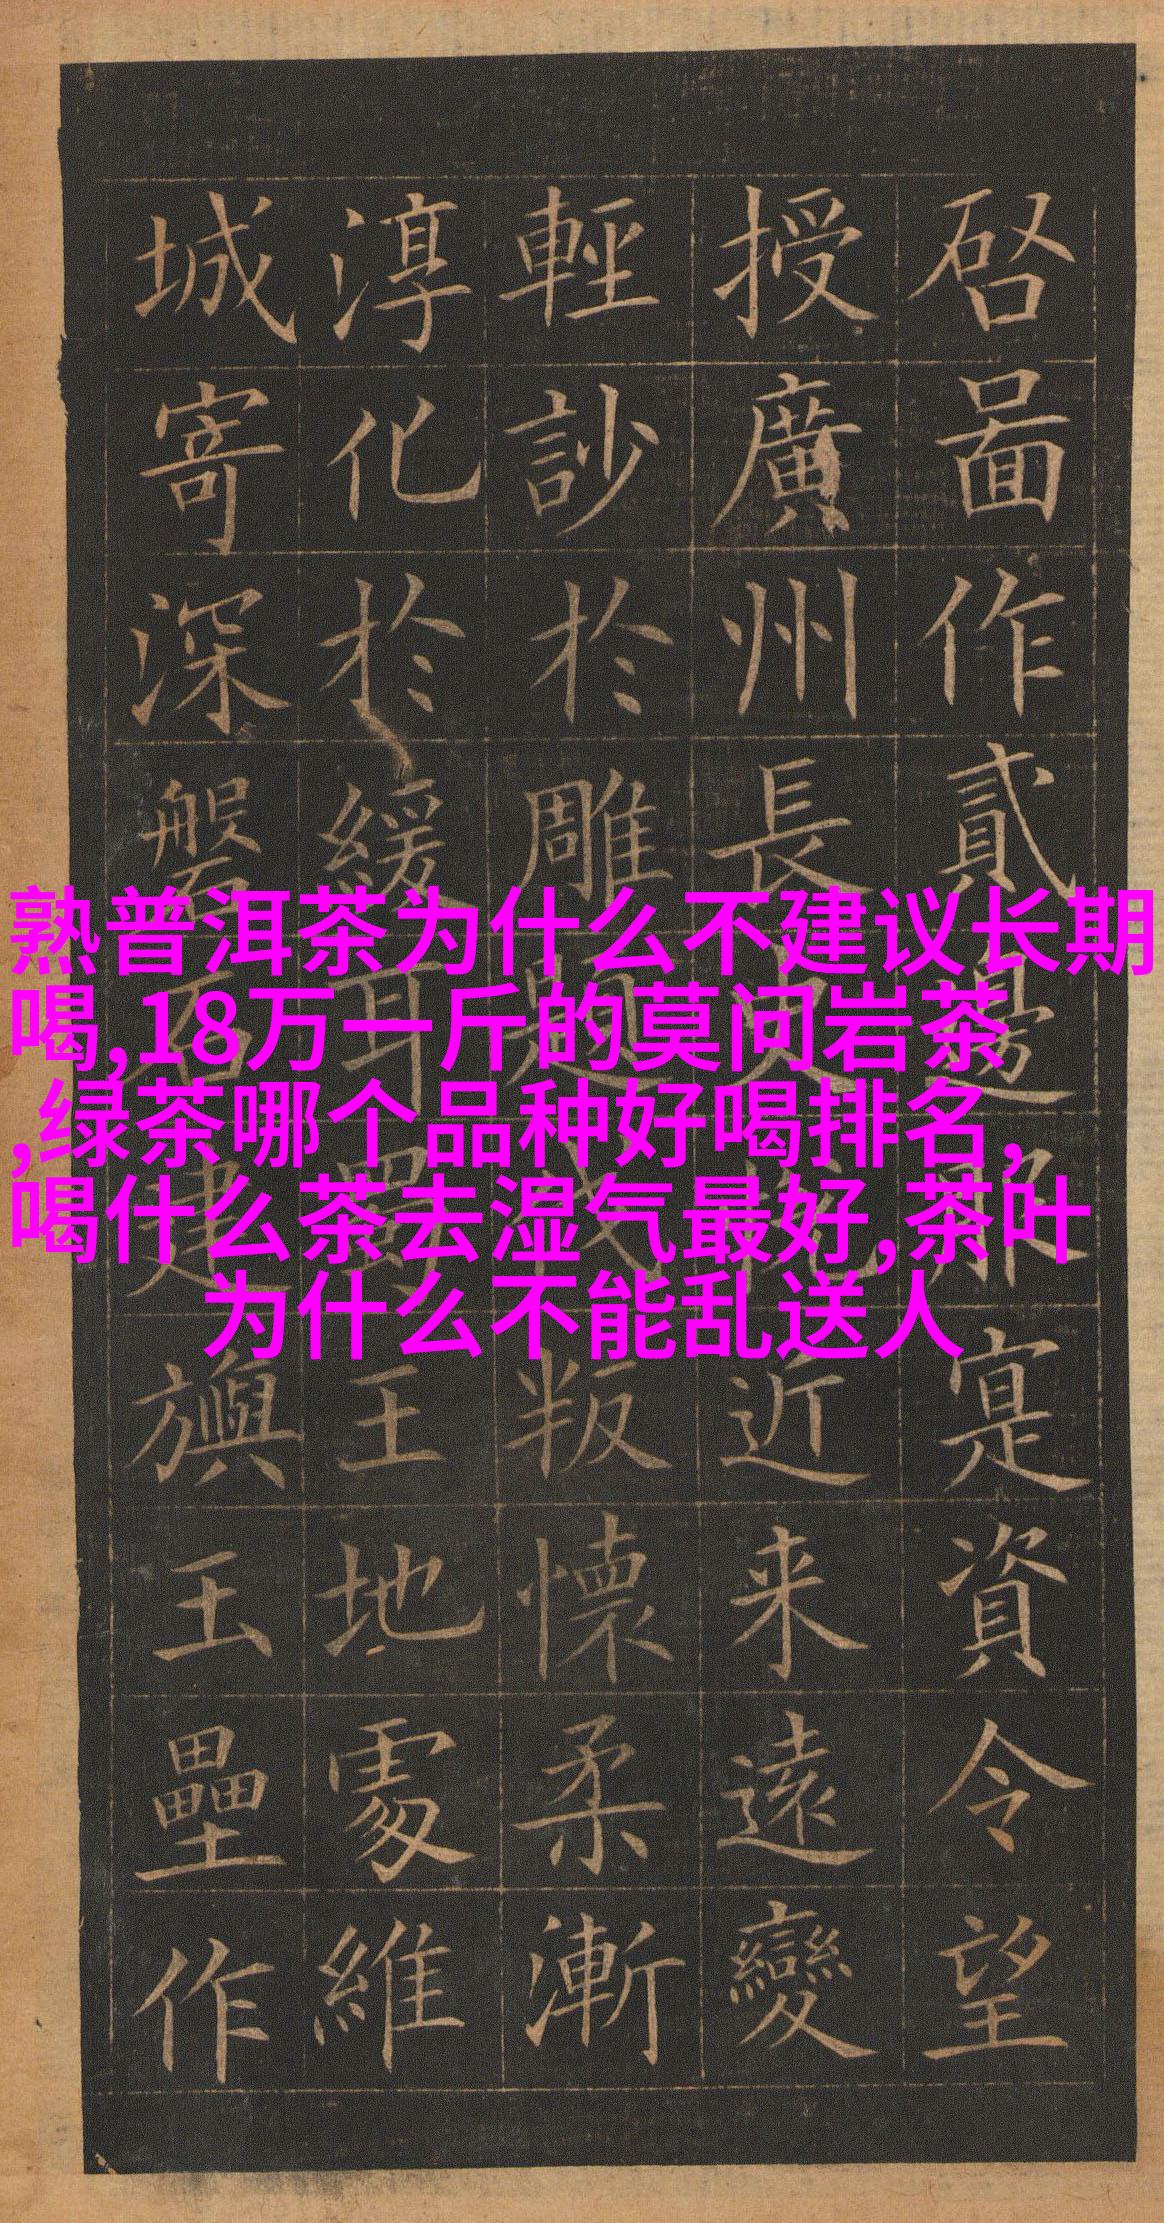 熟普洱茶为什么不建议长期
喝,18万一斤的莫问岩茶
,绿茶哪个品种好喝排名,
喝什么茶去湿气最好,茶叶
为什么不能乱送人
啓圖作貳寔資令望
授廣州長史近来遠變
輕訬於雕題叛懷柔漸
淳化於緩耳爵王地處維
城寄深磐石建旟玉壘作